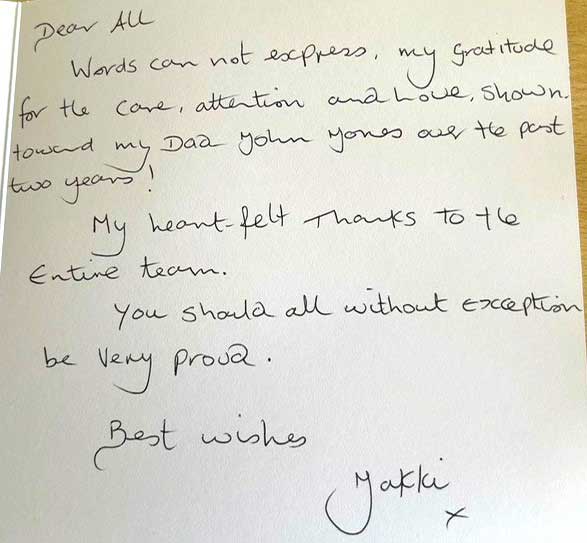 Dear All
Words can not express, my gratitude
for the care, attention and Love, shown.
toward my Dad John Jones over the past
two years!
My heart-felt Thanks to the
Entire team.
You should all without Exception
be Very proud.
Best wishes
Jakki
x